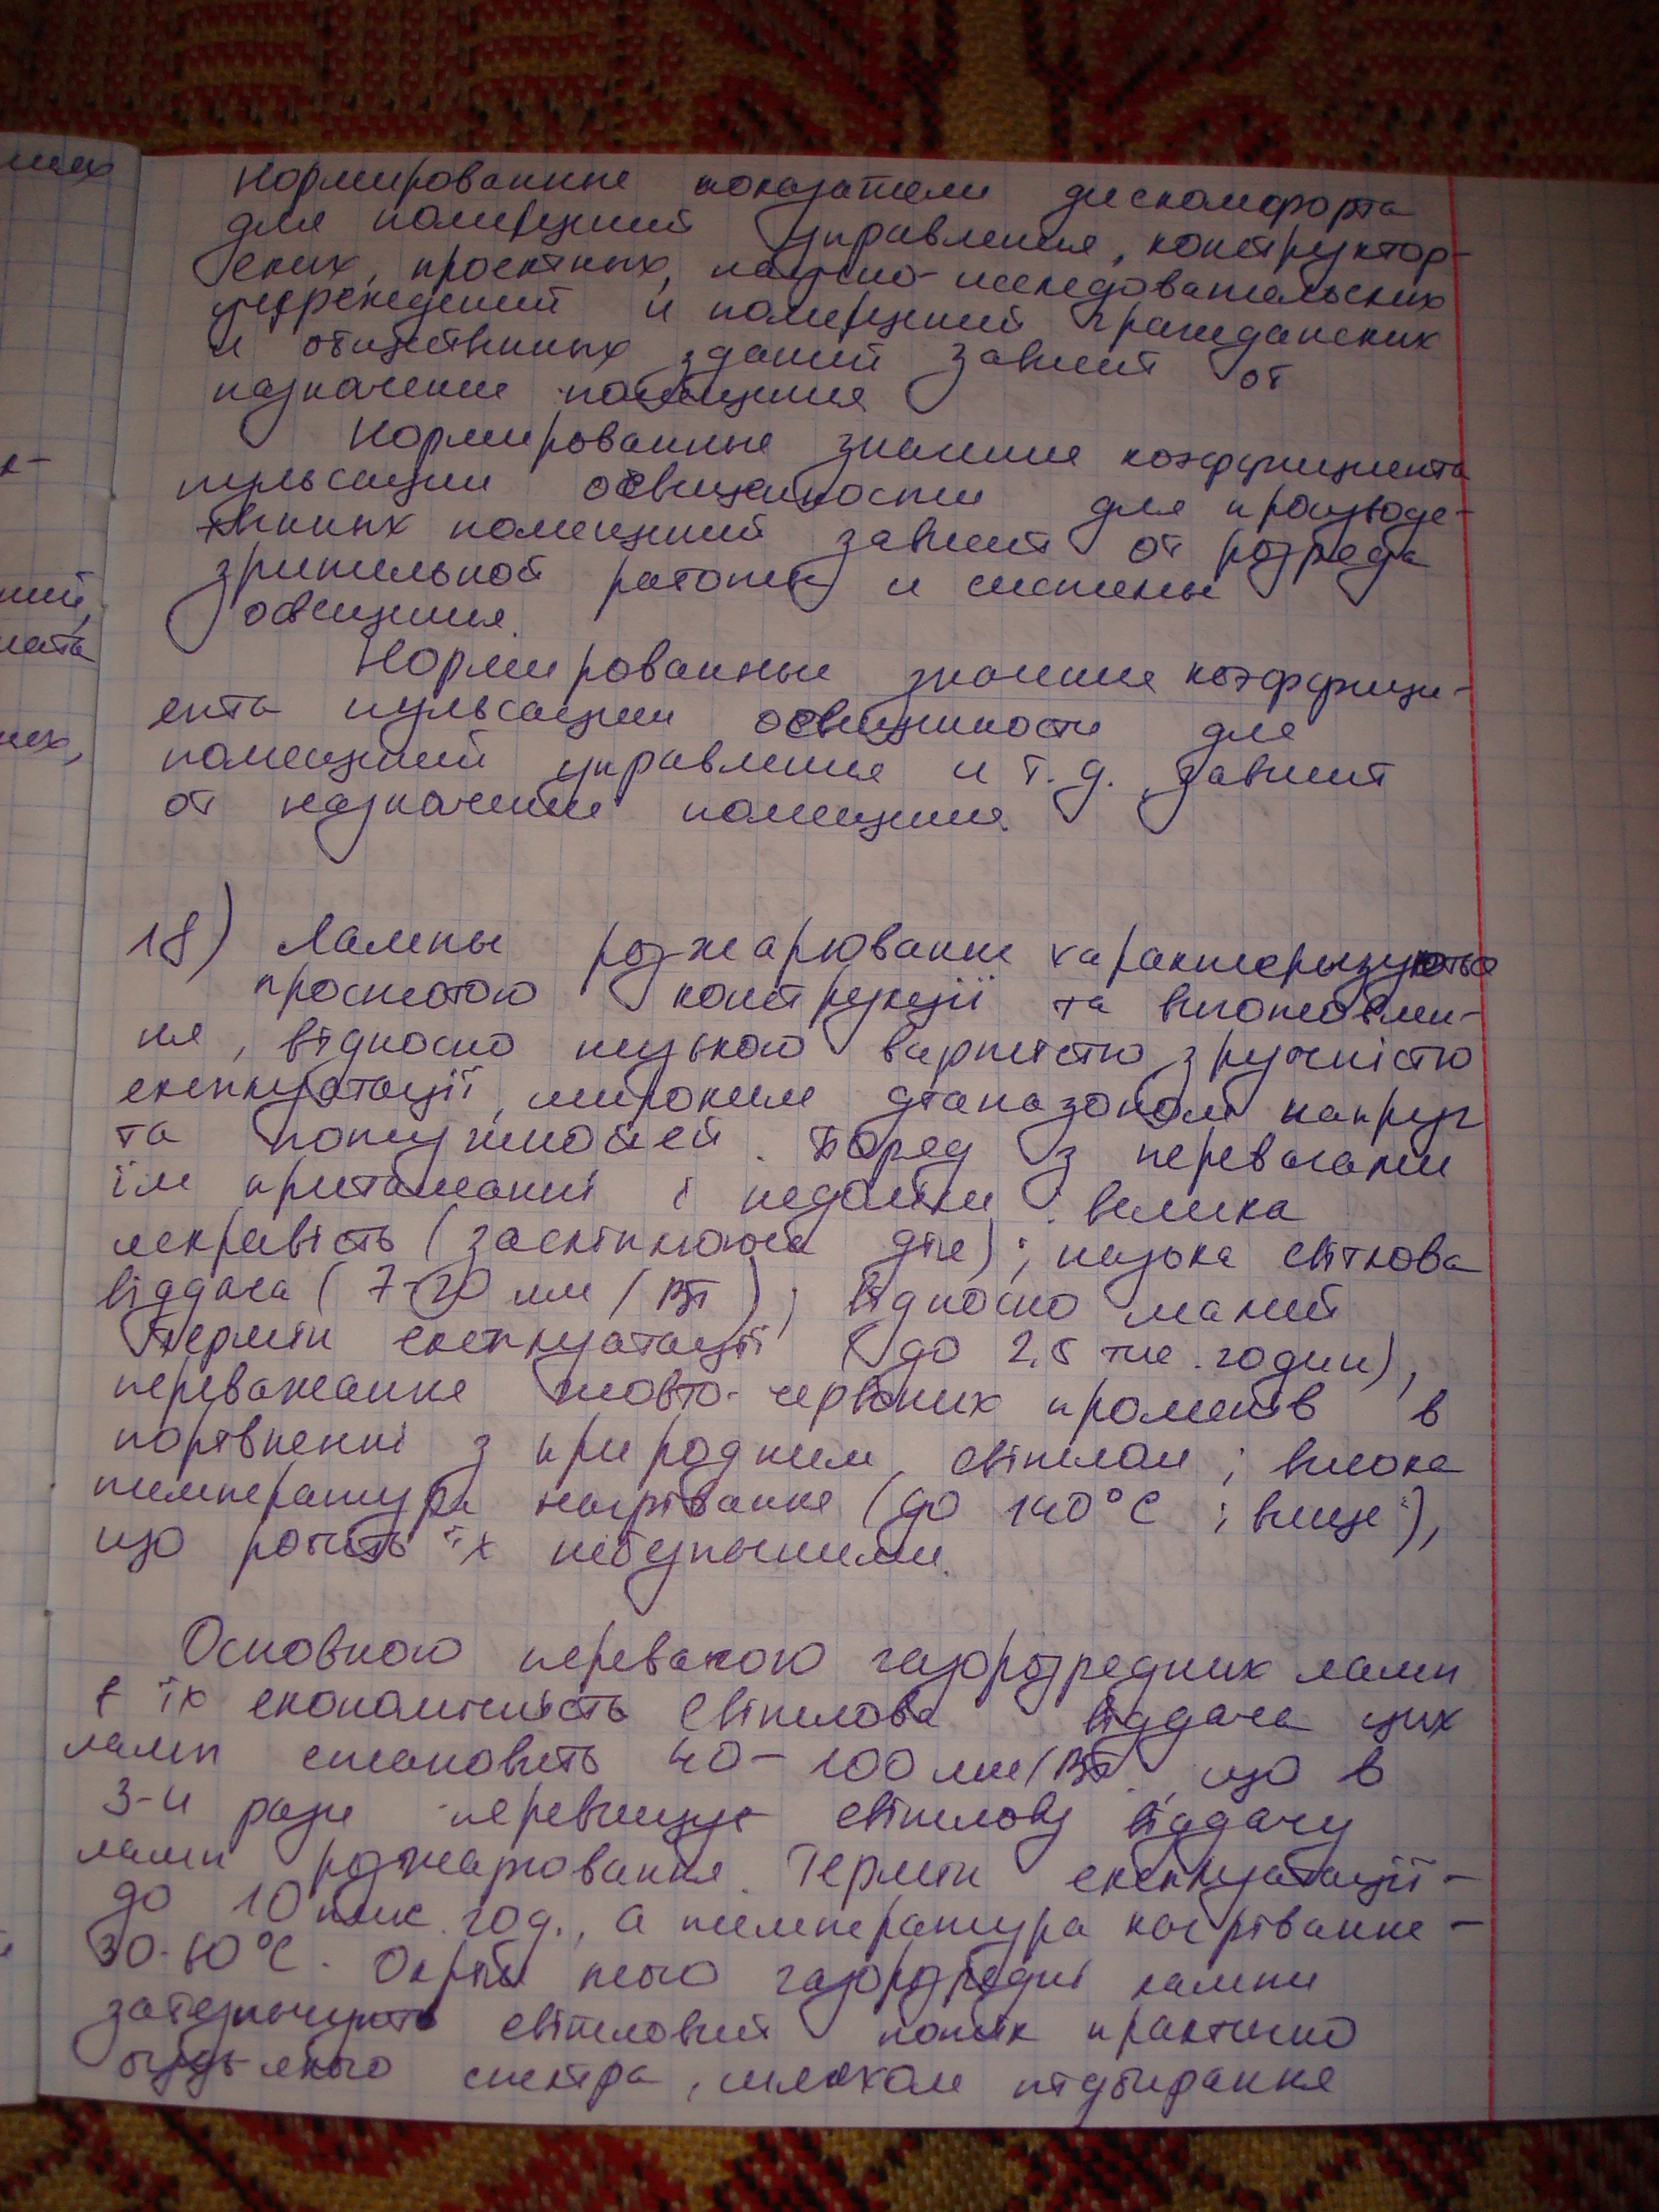 Нормированные показатели дискомфорта
для помещений управления, конструктор-
ских, проектных, научно-исследовательских
учреждений и помещений гражданских
и общественных зданий зависит от
назначения помещения
Нормированные значение коэффициента
пульсации освещенности для производс-
твенных помещений зависит от розряда
зрительной работы и системы
освещения.
Нормированные значение коэффици-
ента пульсации освещенности для
помещений управления и т.д. зависит
от назначения помещения.
18) Лампы розжарювання характеризуються
простотою конструкції та виготовлен-
ня, відносно низькою вартістю, зручністю
експлуатації, широким діапазоном напруг
та потужностей. Поряд з перевагами
їм притаманні і недоліки: велика
яскравість (засліплююча дія); низька світлова
віддача (7-20 лм/Вт); відносно малий
термін експлуатації (до 2,5 тис. годин),
переважання жовто-червоних променів в
порівнянні з природним світлом; висока
температура нагрівання (до 140°C і вище),
що робить їх небезпечними.
Основною перевагою газорозрядних ламп
є їх економічність Світлова віддача цих
ламп становить 40-100 лм/Вт, що в
3-и рази перевищує світлову віддачу
ламп розжарювання. Термін експлуатації -
до 10 тис. год., а температура нагрівання -
30-60°C. Окрім того газорозрядні лампи
забезпечують світловий потік практично
будь якого спектра, шляхом підбирання